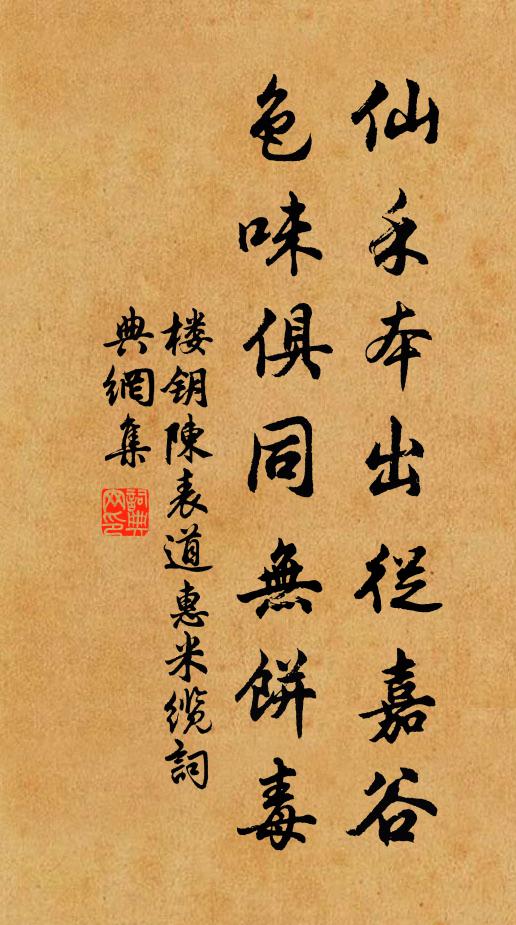 仙禾本出従嘉谷
色味俱同無餅毒
楼鈅陳表道惠米缆詞
典網集
詞典網印